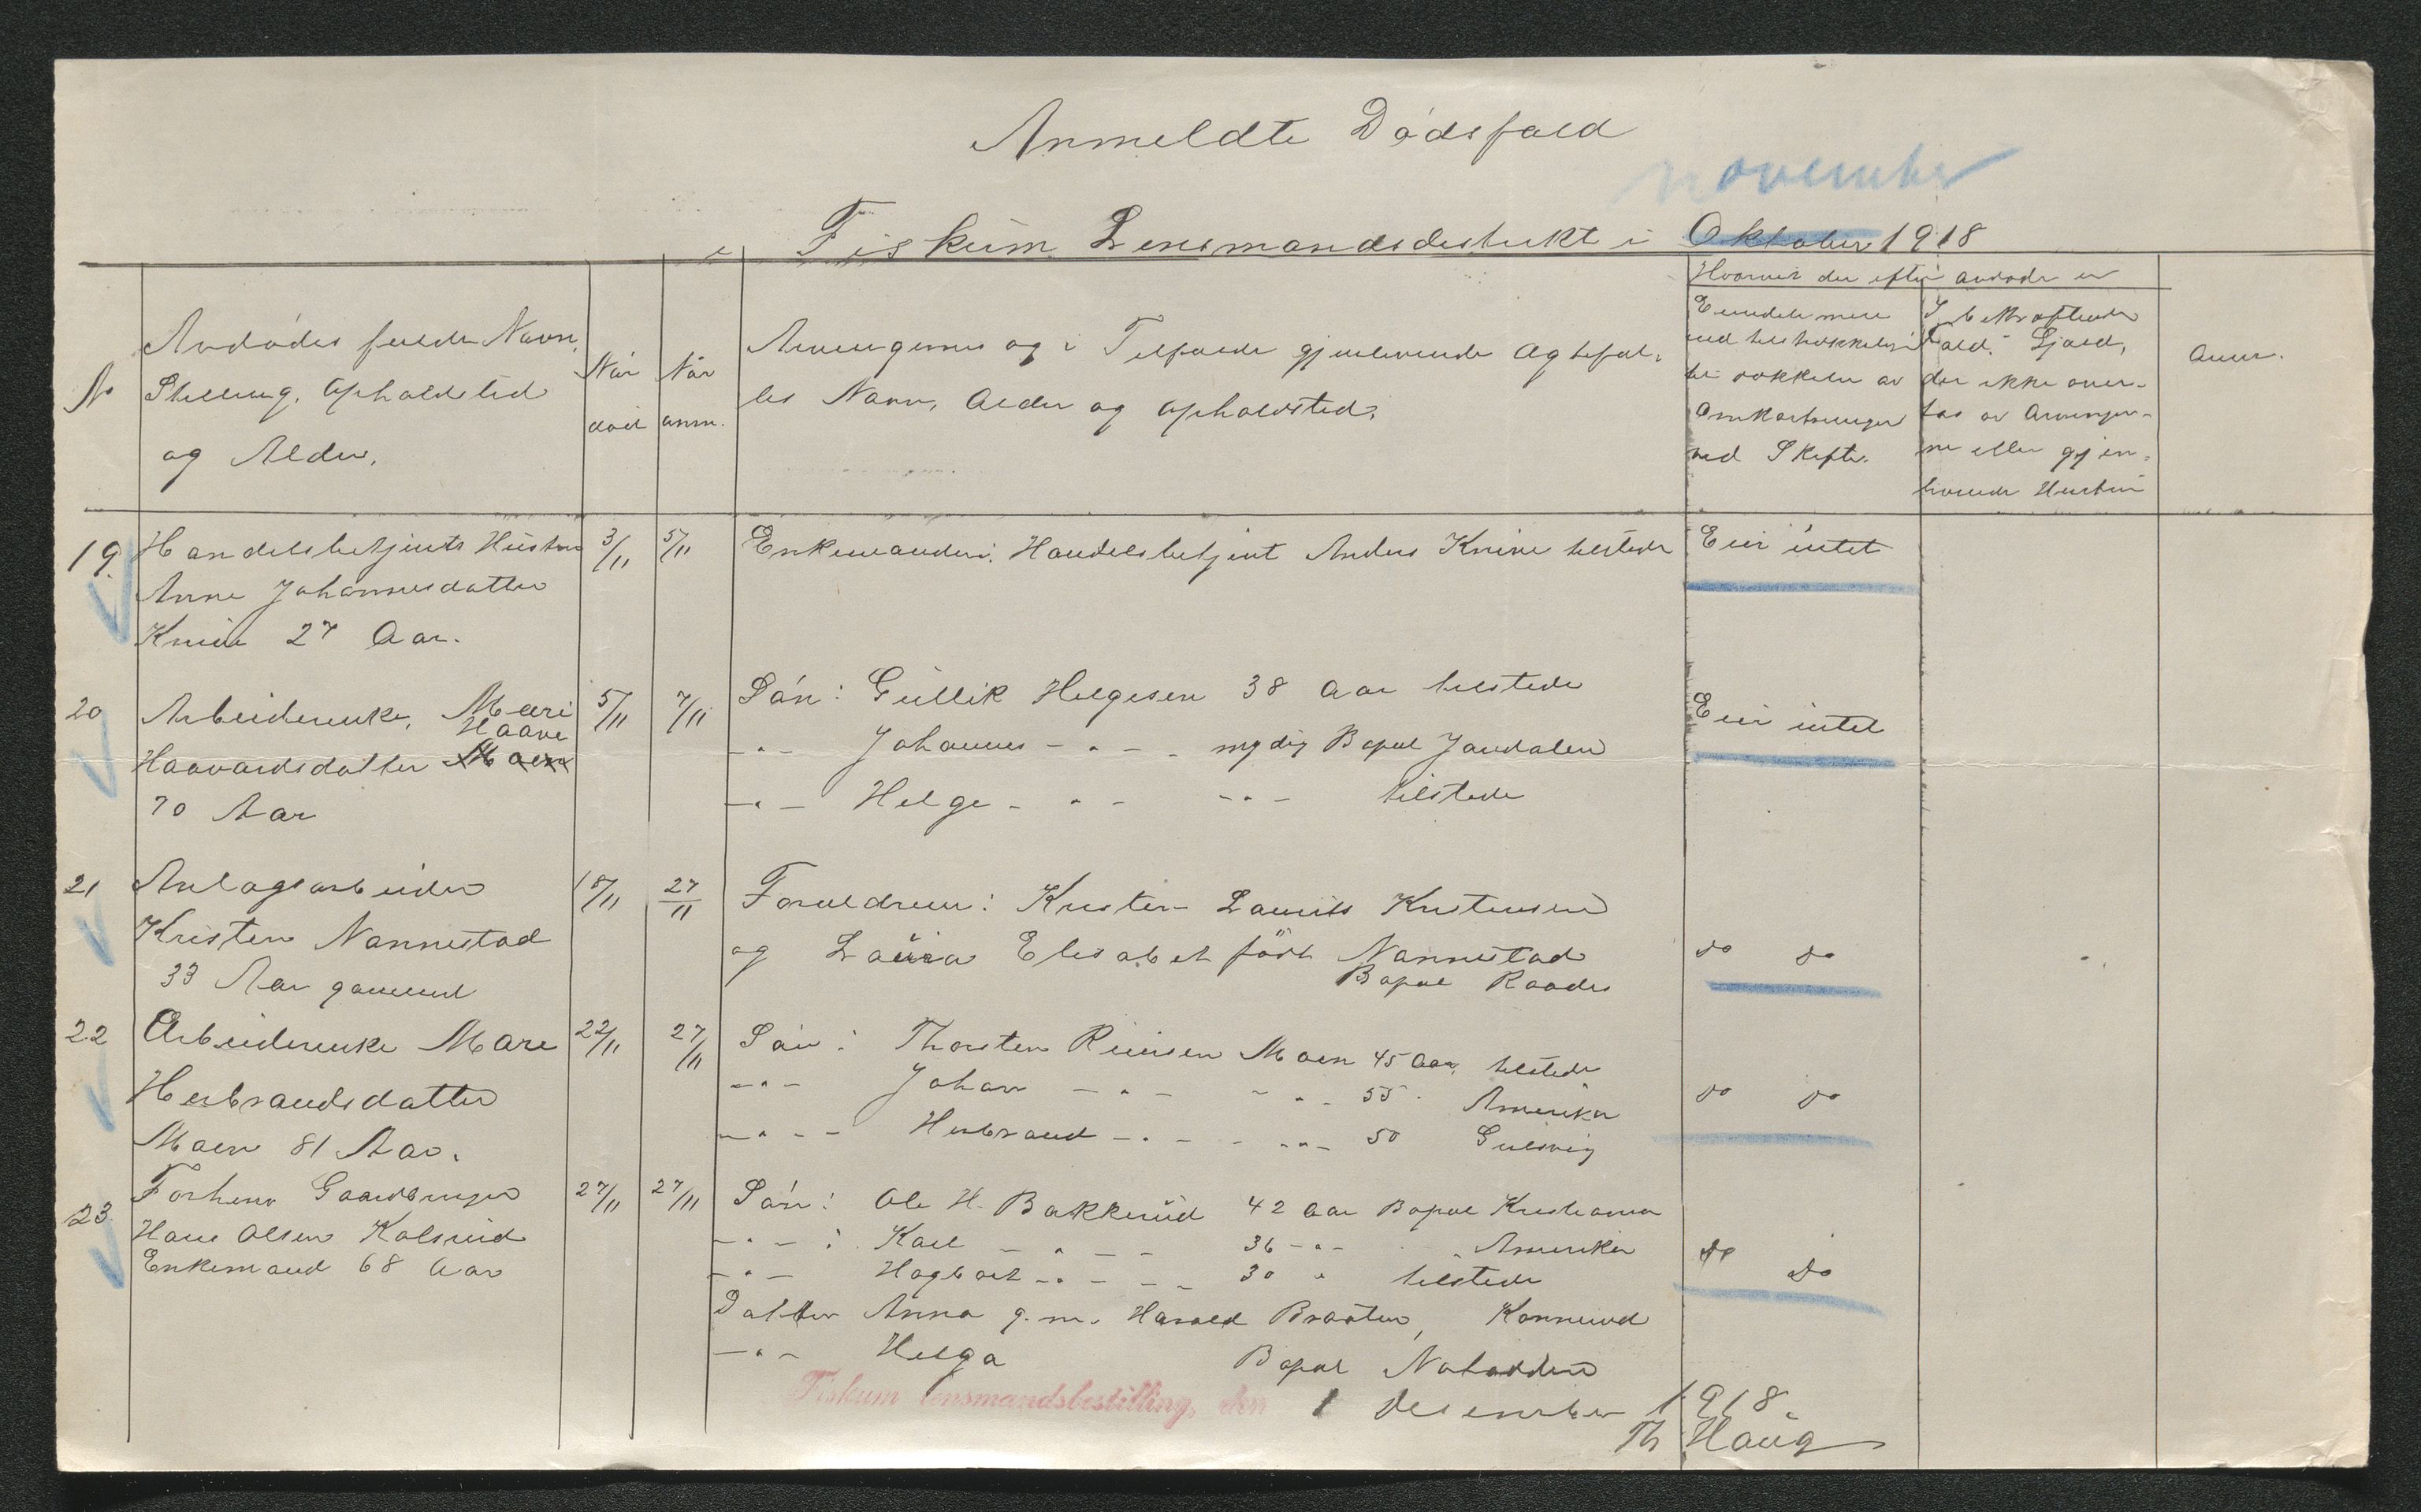 Anmeldte Dødsfald
november
i Fiskum Lensmandsdistrikt i Oktober 1918
No
Avdødes fulde Navn,
Stilling, Opholdssted
og Alder.
Når
død
Når
anm.
Arvingernes og i Tilfælde gjenlevende Ægtefæl-
les Navn, Alder og Opholdssted.
Hvorvidt der efter avdøde er
Eiendele mere
end tilstrækkelig
til dækkelse av
Omkostninger
ved Skifte.
I bekræftende
Fald. Gjæld,
der ikke over-
tas av Arvinger-
ne eller gjen-
levende Hustru
Anm.
19. Handelsbetjents Hustru
Anne Johannesdatter
Knive 27 Aar.
3/11 5/11
Enkemanden: Handelsbetjent Anders Knive tilstede
Eier intet
20 Arbeiderenke, Mari
Haave
Haavardsdatter Moen
70 Aar
5/11 7/11
Søn: Gullik Helgesen 38 Aar tilstede
-"- Johannes -"- myndig Bopæl Jondalen
-"- Helge -"- -"- tilstede
Eier intet
21 Anlægsarbeider
Kristen Nannestad
33 Aar gammel
18/11 27/11
Forældrene: Kristen Laurits Kristensen
og Laura Elisabet født Nannestad
Bopæl Raade
do do
22 Arbeiderenke Mari
Herbrandsdatter
Moen 81 Aar.
22/11 27/11
Søn: Thorsten Moen 45 Aar, tilstede
-"- Johan -"- -"- 55 . Amerika
-"- Herbrand -"- -"- 50 Gulsvig
do do
23. Forhenv Gaardbruger
Hans Olsen Kolsrud
Enkemand 68 Aar
27/11 27/11
Søn: Ole H. Bakkerud 42 Aar Bopæl Kristiania
-"-: Karl -"- 36 -"- Amerika
-"- Hagbart -"- 30 " tilstede
Datter Anna g.m. Harald Braaten, Konnerud
-"- Helga Bopæl Notodden
do do
Fiskum lensmandsbestilling, den 1 Desember 1918.
Th Haug